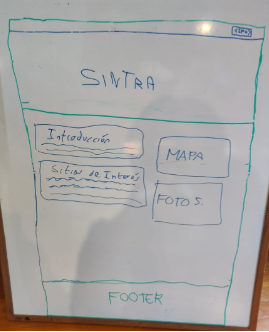 SINTRA
Introducción
MAPA
Sitios de Interés
FOTOS
FOOTER